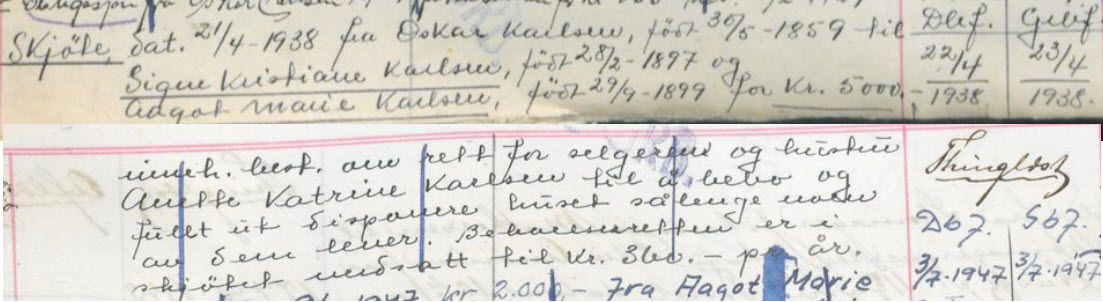 Skjöte, dat. 21/4-1938 fra Oskar Karlsen, född 30/5-1859 til
Signe Kristiane Karlsen, född 28/2-1897 og
Aagot Marie Karlsen, född 29/9-1899 for Kr. 5000.-
Dbf. Gbf.
22/4 23/4
1938 1938.
inneh. best. om rett for selgeren og hustru
Anette Katrine Karlsen til å bebo og
fullt ut disponere huset sålenge noen
av dem lever. Beboelsesretten er i
skjötet verdsatt til kr. 360.- pr. år.
1947 kr 2.000,- fra Aagot Marie
Thinglyst
Db7. Gb7.
3/7-1947 3/7-1947